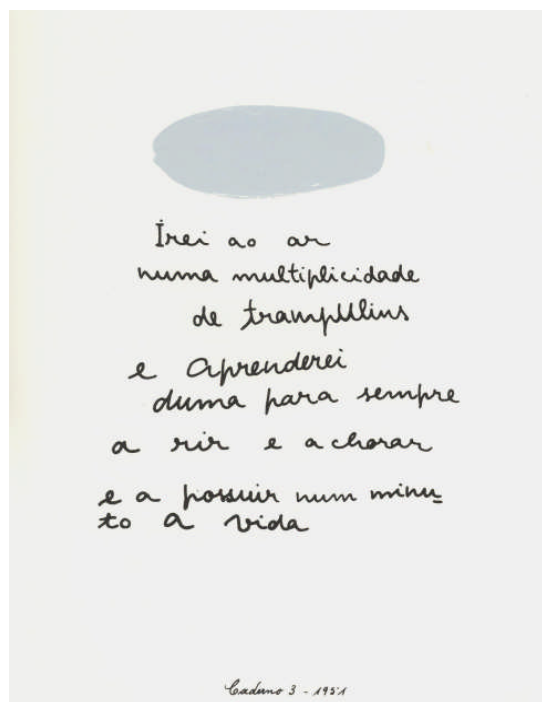 Irei ao ar
numa multiplicidade
de trampUlins
e aprenderei
duma para sempre
a rir e a chorar
e a possuir num minu-
to a vida
Caderno 3 - 1951